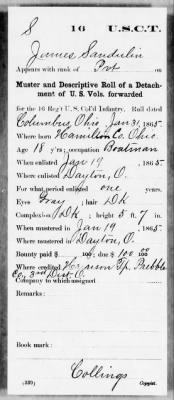 S 16 U.S.C.T.
James Sandulin
Appears with rank of Pvt on
Muster and Descriptive Roll of a Detach-
ment of U. S. Vols. forwarded
for the 16 Reg't U. S. Col'd Infantry. Roll dated
Columbus, Ohio Jan 31, 1865.
Where born Hamilton Co. Ohio.
Age 18 y'rs; occupation Boatman
When enlisted Jan 19, 1865.
Where enlisted Dayton, O.
For what period enlisted one years.
Eyes Gray; hair DK
Complexion DK; height 5 ft. 7 in.
When mustered in Jan 19, 1865.
Where mustered in Dayton, O.
Bounty paid $ 100; due $ 100 00/100
Where credited Harrison Tp. Preble
Co, 3rd Dist O.
Company to which assigned
Remarks:
Book mark:
Collings
(339) Copyist.